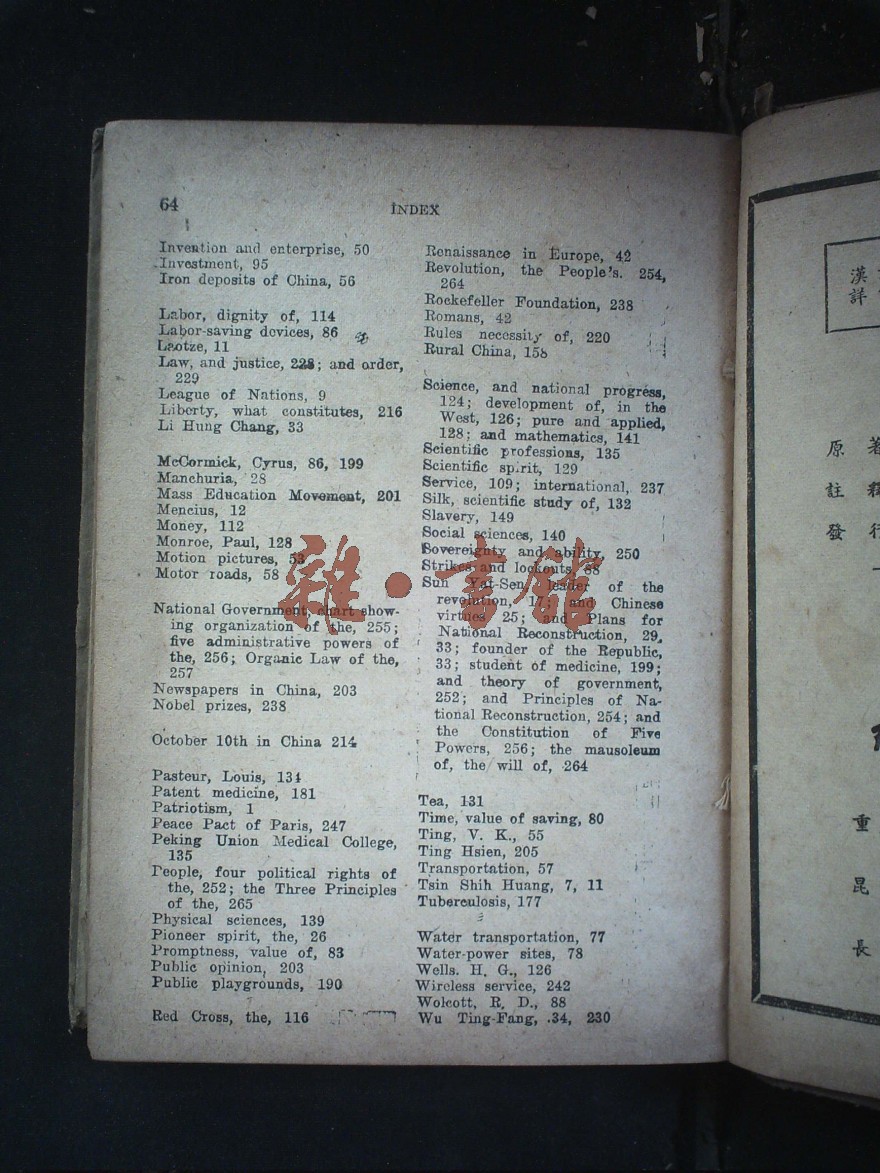 64
INDEX
Invention and enterprise, 50
Investment, 95
Iron deposits of China, 56
Labor, dignity of, 114
Labor-saving devices, 86
Laotze, 11
Law, and justice, 228; and order,
229
League of Nations, 9
Liberty, what constitutes, 216
Li Hung Chang, 33
McCormick, Cyrus, 86, 199
Manchuria, 28
Mass Education Movement, 201
Mencius, 12
Money, 112
Monroe, Paul, 128
Motion pictures, 53
Motor roads, 58
National Government, chart show-
ing organization of the, 255;
five administrative powers of
the, 256; Organic Law of the,
257
Newspapers in China, 203
Nobel prizes, 238
October 10th in China 214
Pasteur, Louis, 134
Patent medicine, 181
Patriotism, 1
Peace Pact of Paris, 247
Peking Union Medical College,
135
People, four political rights of
the, 252; the Three Principles
of the, 265
Physical sciences, 139
Pioneer spirit, the, 26
Promptness, value of, 83
Public opinion, 203
Public playgrounds, 190
Red Cross, the, 116
Renaissance in Europe, 42
Revolution, the People's. 254,
264
Rockefeller Foundation, 238
Romans, 42
Rules necessity of, 220
Rural China, 158
Science, and national progress,
124; development of, in the
West, 126; pure and applied,
128; and mathematics, 141
Scientific professions, 135
Scientific spirit, 129
Service, 109; international, 237
Silk, scientific study of, 132
Slavery, 149
Social sciences, 140
Sovereignty and ability, 250
Strikes and lockouts, 88
Sun Yat-Sen, leader of the
revolution, 17; and Chinese
virtues, 25; and Plans for
National Reconstruction, 29,
33; founder of the Republic,
33; student of medicine, 199;
and theory of government,
252; and Principles of Na-
tional Reconstruction, 254; and
the Constitution of Five
Powers, 256; the mausoleum
of, the will of, 264
Tea, 131
Time, value of saving, 80
Ting, V. K., 55
Ting Hsien, 205
Transportation, 57
Tsin Shih Huang, 7, 11
Tuberculosis, 177
Water transportation, 77
Water-power sites, 78
Wells. H. G., 126
Wireless service, 242
Wolcott, R. D., 88
Wu Ting-Fang, 34, 230
雜·書館
漢詳
原註發
重昆長